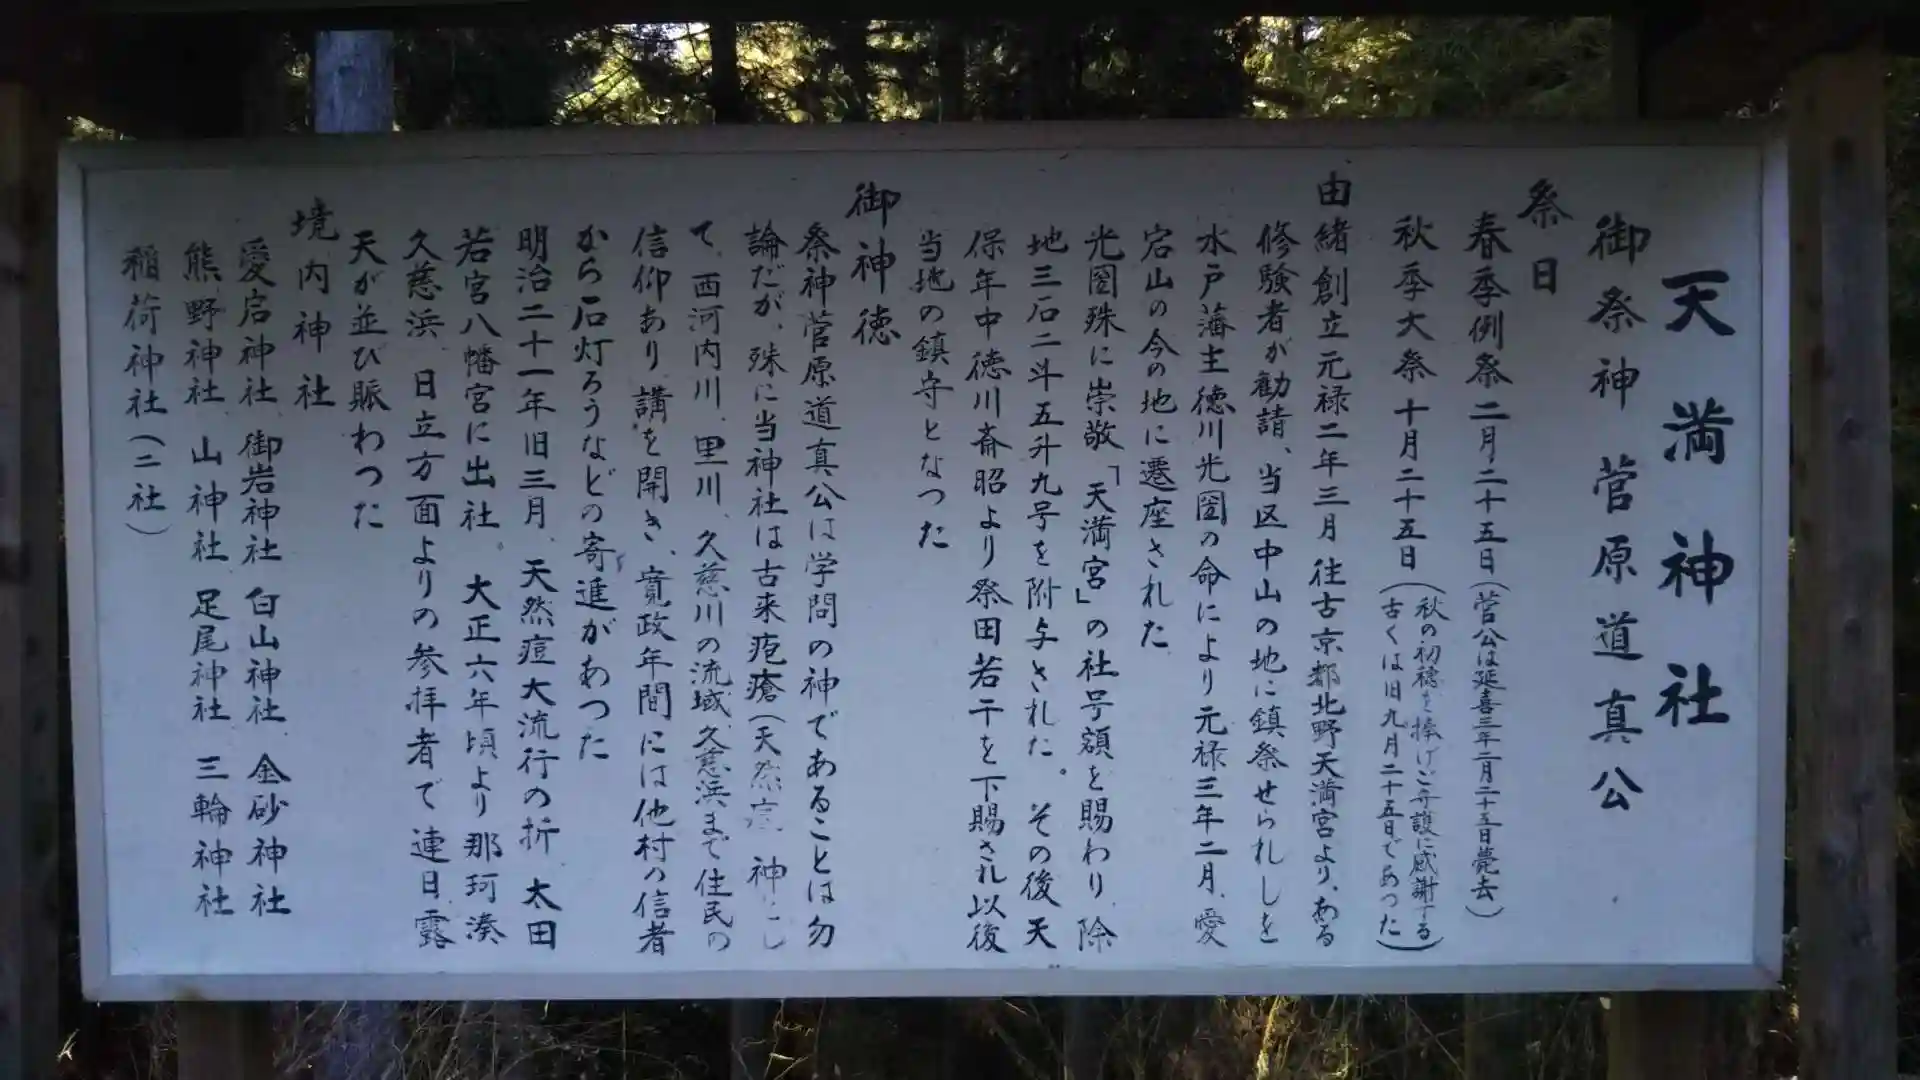 天満神社
御祭神 菅原道真公
祭日
春季例祭 二月二十五日(菅公は延喜三年二月二十五日薨去)
秋季大祭 十月二十五日(秋の初穂を捧げご守護に感謝する
古くは旧九月二十五日であった)
由緒創立元禄二年三月 往古京都北野天満宮より、ある
修験者が勧請、当区中山の地に鎮祭せられしを
水戸藩主徳川光圀の命により元禄三年二月、愛
宕山の今の地に遷座された
光圀殊に崇敬「天満宮」の社号額を賜わり、除
地三石二斗五升九号を附与された。その後天
保年中徳川斉昭より祭田若干を下賜され以後
当地の鎮守となった
御神徳
祭神菅原道真公は学問の神であることは勿
論だが、殊に当神社は古来疱瘡(天然痘 神とし
て、西河内川、里川、久慈川の流域、久慈浜まで住民の
信仰あり 講を開き、寛政年間には他村の信者
から石灯ろうなどの寄進があった
明治二十一年旧三月、天然痘大流行の折 太田
若宮八幡宮に出社、大正六年頃より那珂湊
久慈浜 日立方面よりの参拝者で連日露
天が並び賑わった
境内神社
愛宕神社 御岩神社 白山神社 金砂神社
熊野神社 山神社 足尾神社 三輪神社
稲荷神社(二社)